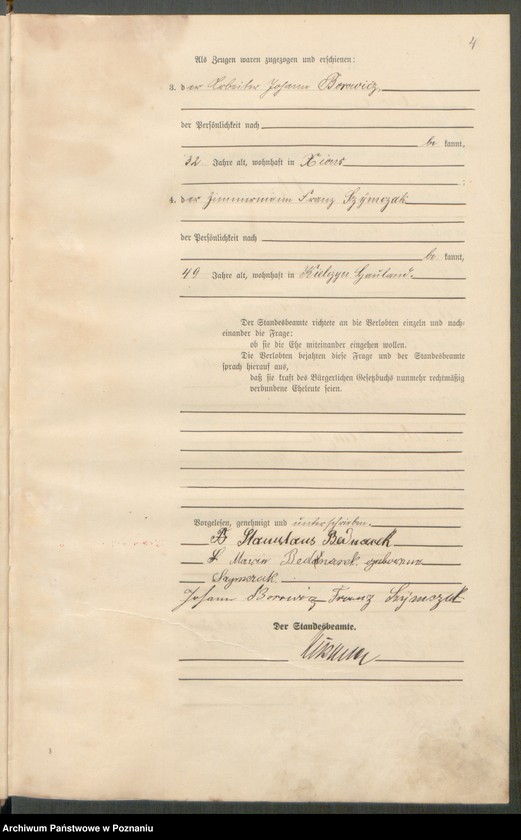 4
Als Zeugen waren zugezogen und erschienen:
3. der Arbeiter Johann Borowicz,
der Persönlichkeit nach
be kannt,
32 Jahre alt, wohnhaft in Xions
;
4. der Zimmermann Franz Szymczak
der Persönlichkeit nach
be kannt,
49 Jahre alt, wohnhaft in Hauland.
Der Standesbeamte richtete an die Verlobten einzeln und nach-
einander die Frage:
ob sie die Ehe miteinander eingehen wollen.
Die Verlobten bejahten diese Frage und der Standesbeamte
sprach hierauf aus,
daß sie kraft des Bürgerlichen Gesetzbuchs nunmehr rechtmäßig
verbundene Eheleute seien.
Vorgelesen, genehmigt und unterschrieben.
Stanislaus Bednarek
Maria Bednarek geborene
Szymczak
Johann Borowicz Franz Szymczak
Der Standesbeamte.
Archiwum Państwowe w Poznaniu